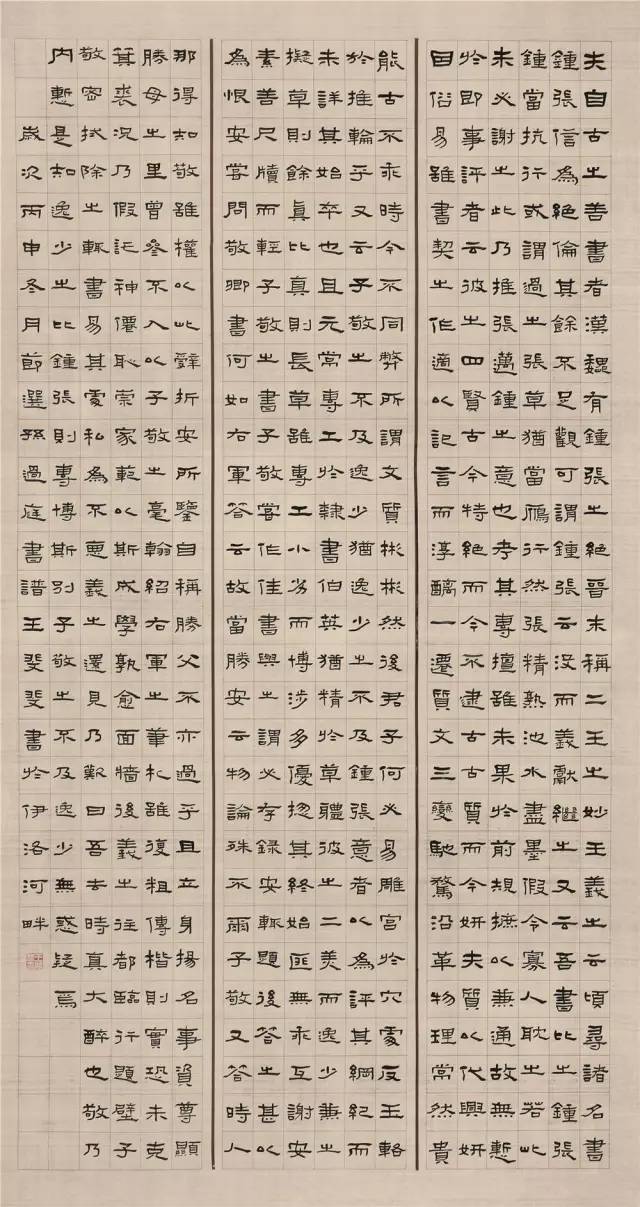 夫自古之善書者漢魏有鍾張之絕晉末稱二王之妙王羲之云頃尋諸名書
鍾張信為絕倫其餘不足觀可謂鍾張云沒而羲獻繼之又云吾書比之鍾張
鍾當抗行或謂過之張草猶當鴈行然張精熟池水盡墨假令寡人耽之若此
未必謝之此乃推張邁鍾之意也考其專擅雖未果於前規摭以兼通故無慙
於即事評者云彼之四賢古今特絕而今不逮古古質而今妍夫質以代興妍
因俗易雖書契之作適以記言而淳醨一遷質文三變馳騖沿革物理常然貴
能古不乖時今不同弊所謂文質彬彬然後君子何必易雕宮於穴處反玉輅
於推輪乎又云子敬之不及逸少猶逸少之不及鍾張意者以為評其綱紀而
未詳其始卒也且元常專工於隸書伯英猶精於草體彼之二美而逸少兼之
擬草則餘真比真則長草雖專工小劣而博涉多優揔其終始匪無乖互謝安
素善尺牘而輕子敬之書子敬嘗作佳書與之謂必存錄安輒題後答之甚以
為恨安嘗問敬卿書何如右軍答云故當勝安云物論殊不爾子敬又答時人
那得知敬雖權以此辭折安所鑒自稱勝父不亦過乎且立身揚名事資尊顯
勝母之里曾參不入以子敬之毫翰紹右軍之筆札雖復粗傳楷則實恐未克
箕裘況乃假託神僊恥崇家範以斯成學孰愈面牆後羲之往都臨行題壁子
敬密拭除之輒書易其處私為不惡羲之還見乃歎曰吾去時真大醉也敬乃
內慙是知逸少之比鍾張則專博斯別子敬之不及逸少無惑疑焉
歲次丙申冬月節選孫過庭書譜王斐斐書於伊洛河畔